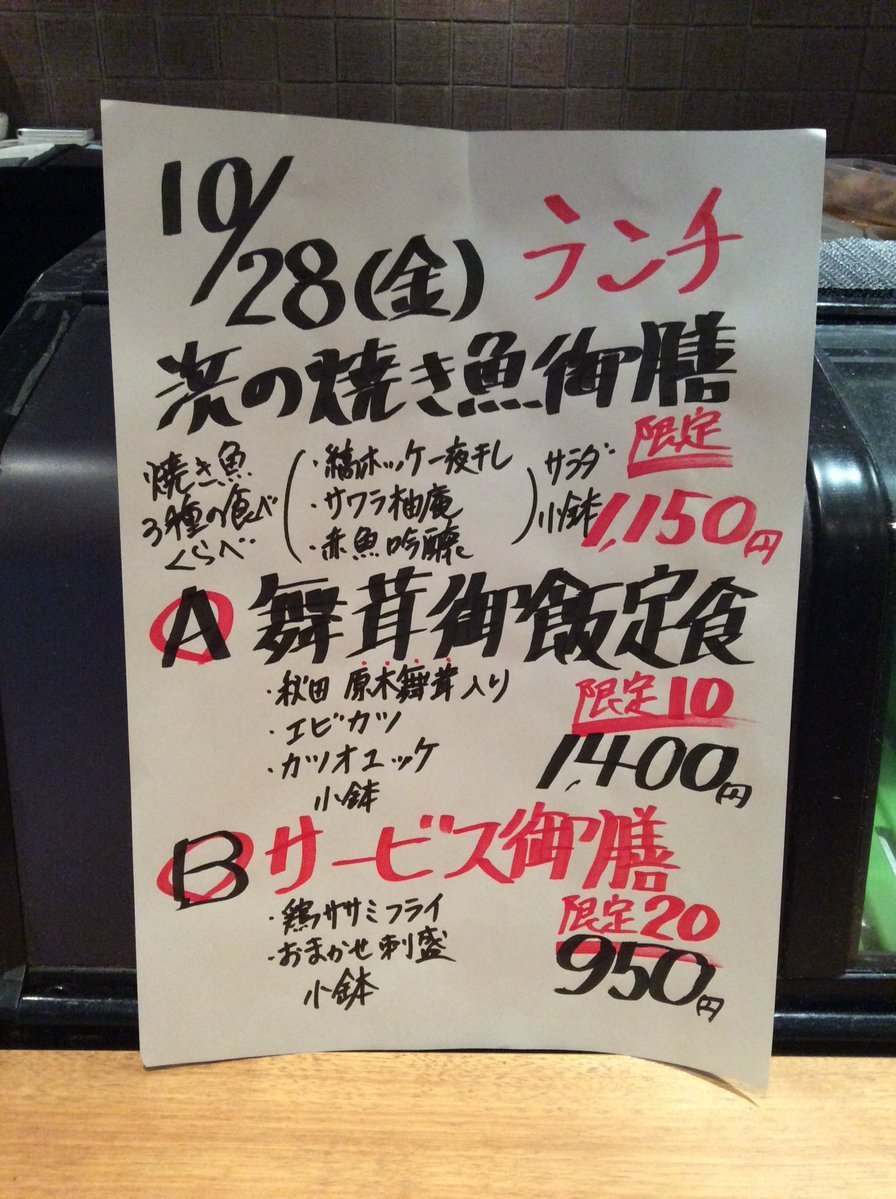 10/28(金) ランチ
亮の焼き魚御膳
限定
焼き魚
3種の食べ
くらべ
・縞ホッケ一夜干し
・サワラ柚庵
・赤魚吟醸
サラダ
小鉢
1,150円
A 舞茸御飯定食
・秋田 原木舞茸入り
・エビカツ
・カツオユッケ
小鉢
限定10
1,400円
B サービス御膳
・鶏ササミフライ
・おまかせ刺盛
小鉢
限定20
950円